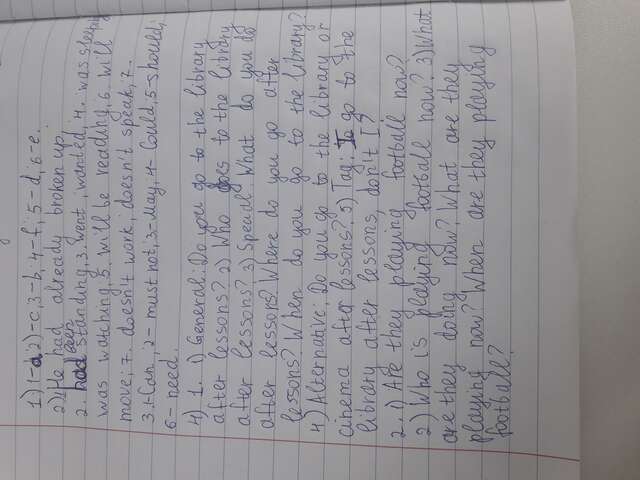 1) 1-a; 2)-c; 3-b; 4-f; 5-d; 6-e.
2) 1. He had already broken up.
2. had been standing, 3. went, wanted, 4. was sleeping
was watching, 5. will be reading, 6. will
move; 7. doesn't work, doesn't speak; 7.
3. 1-Can, 2- must not, 3-May, 4- Could, 5-should;
6-need.
4) 1. 1) General: Do you go to the library
after lessons? 2) Who goes to the library
after lessons? 3) Special: What do you do
after lessons? Where do you go after
lessons? When do you go to the library?
4) Alternative: Do you go to the library or
cinema after lessons? 5) Tag: I go to the
library after lessons, don't I?
2. 1) Are they playing football now?
2) Who is playing football now? 3) What
are they doing now? What are they
playing now? When are they playing
football?